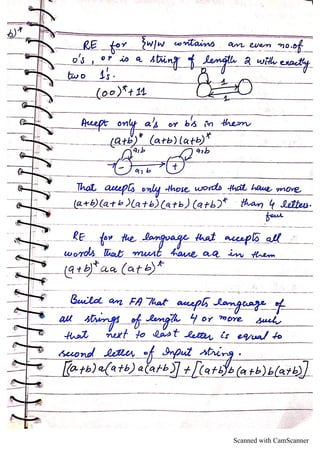 b)*
RE for {w/w contains an even no.of
0's, or is a string of length 2 with exactly
two 1's.
1
(00)*+11
1
Accept only a's or b's in them
(a+b)* (a+b)(a+b)*
a,b a,b
- a,b +
That accepts only those words that have more
(a+b)(a+b)(a+b)(a+b)(a+b)* than 4 letters.
four
RE for the language that accepts all
words that must have aa in them
(a+b)* aa (a+b)*
Build an FA that accepts language of
all strings of length 4 or more such
that next to last letter is equal to
second letter of Input string.
[(a+b)a(a+b)a(a+b)] + [(a+b)b(a+b)b(a+b)]
Scanned with CamScanner